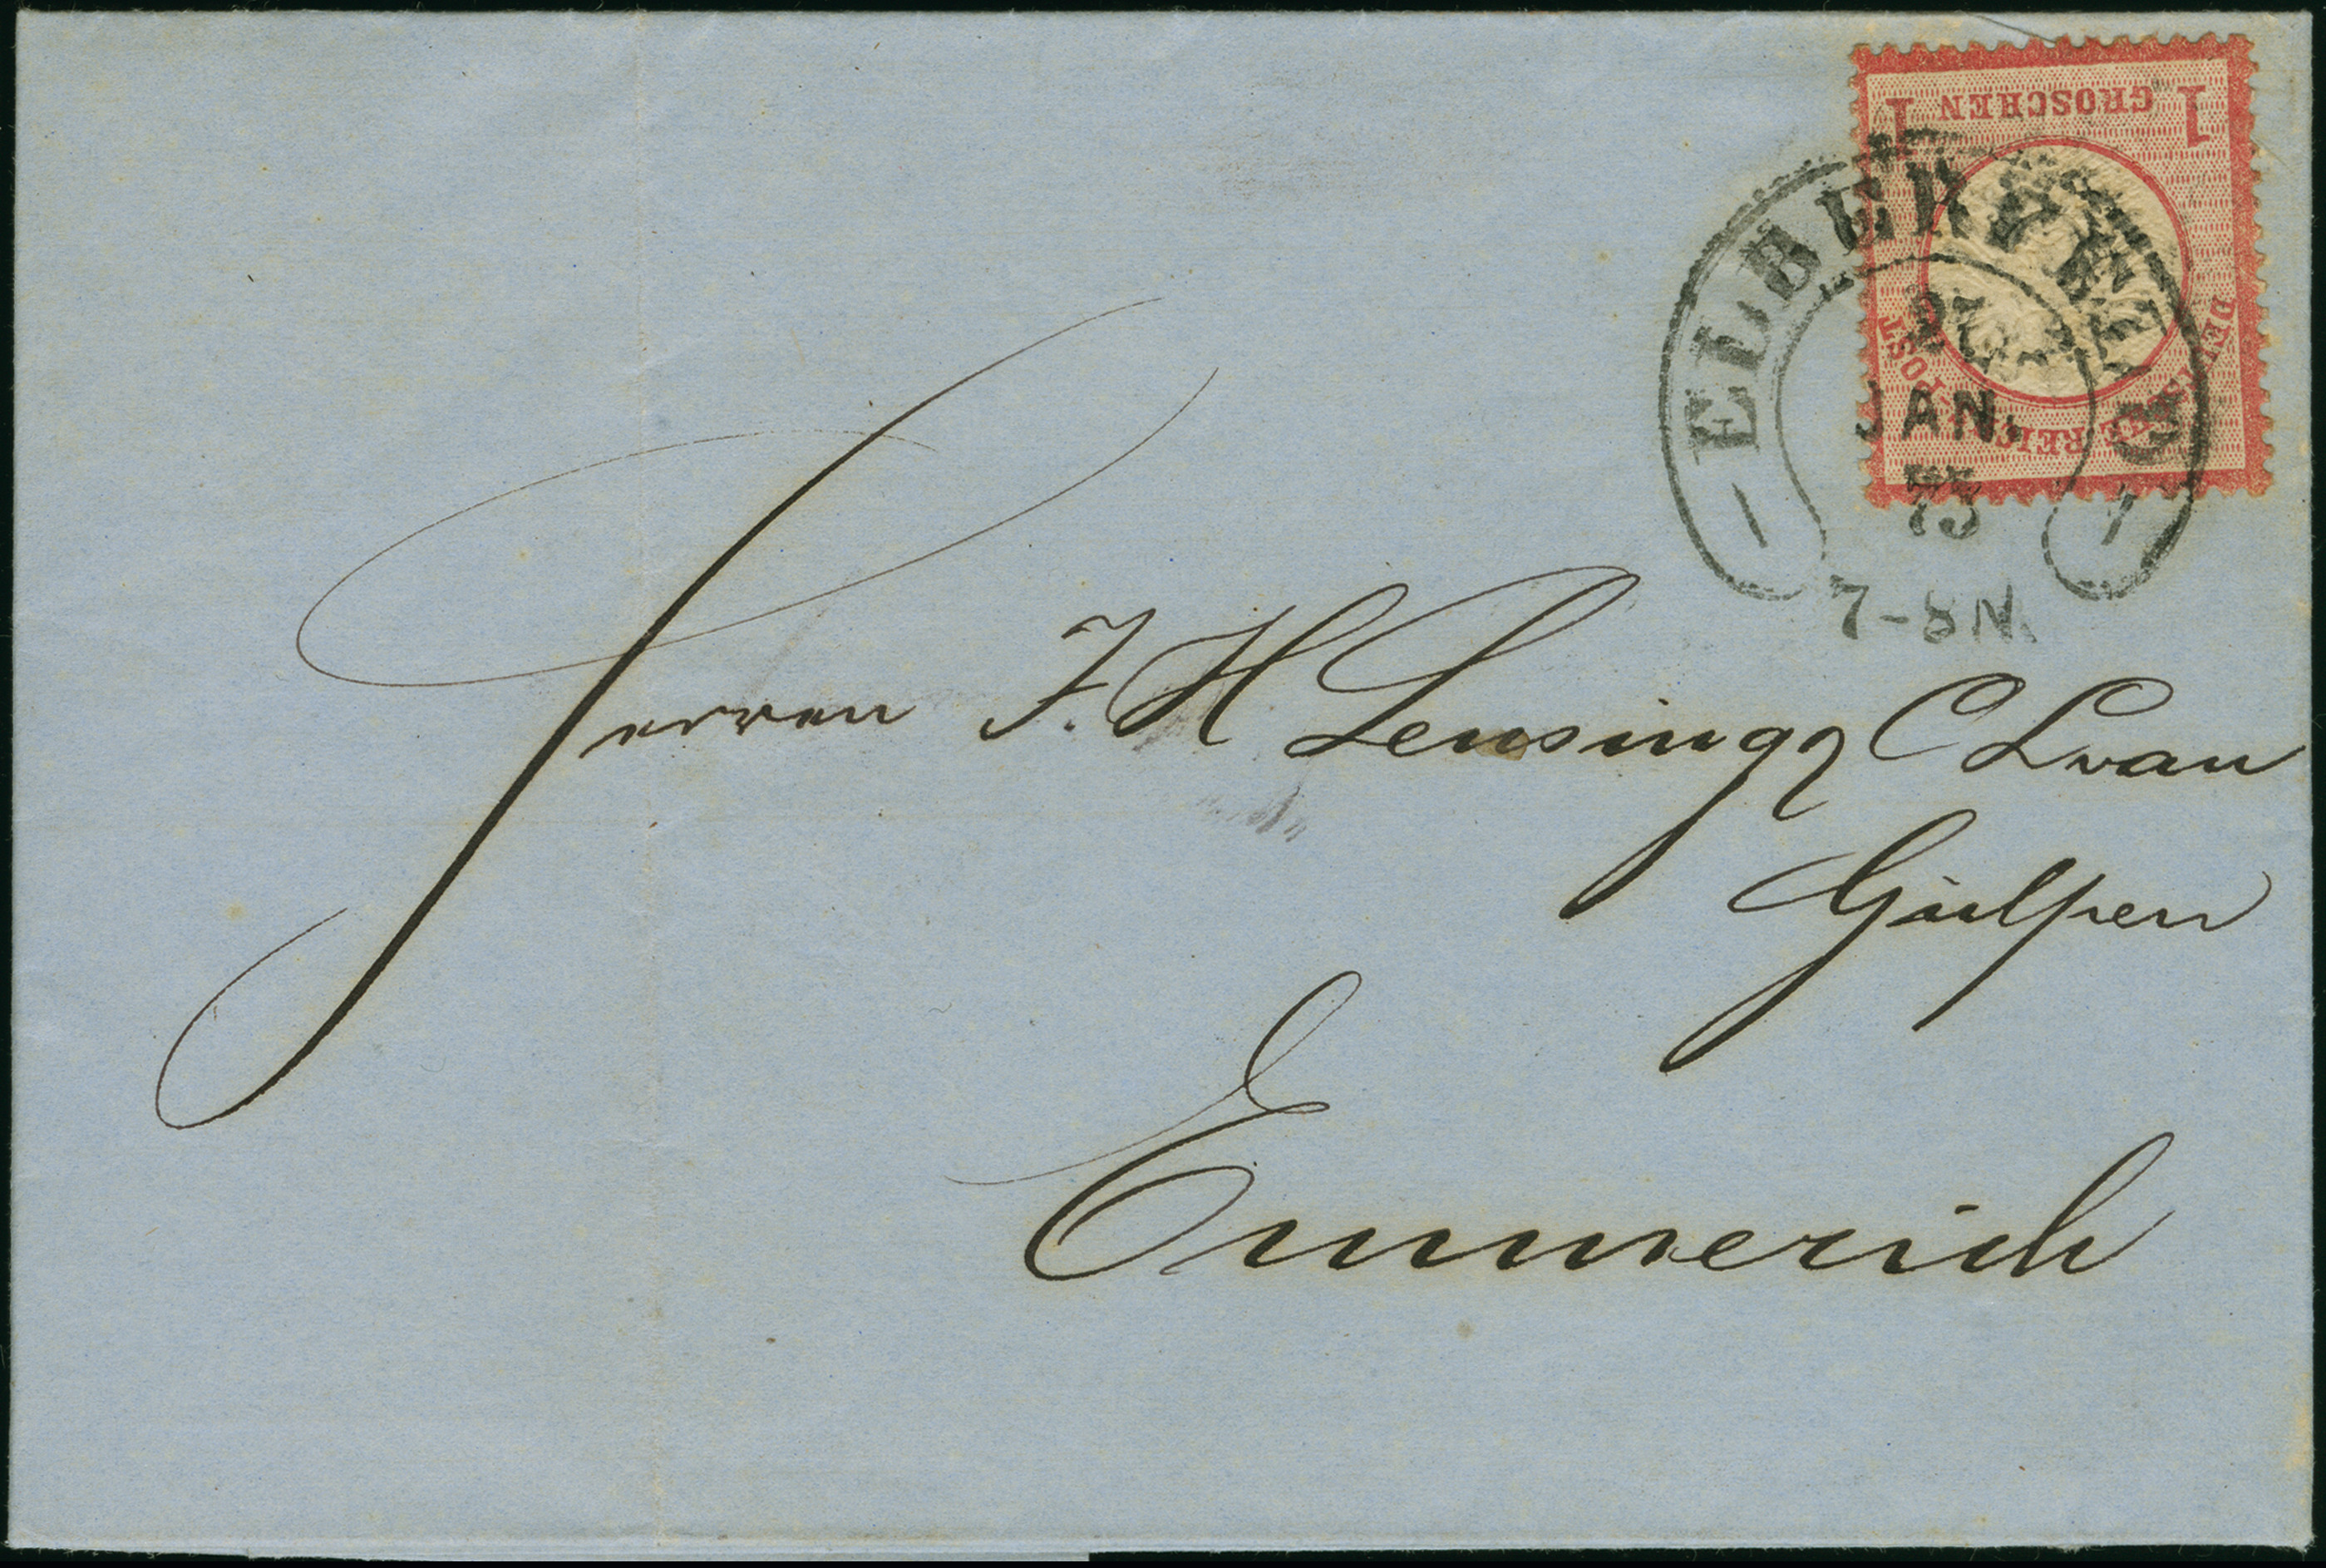 1 GROSCHEN 1
DEUTSCHE REICHS-POST
ELBERFELD
JAN.
73
7-8 N.
Herren J. H Lensing & C L van
Gülpen
Emmerich